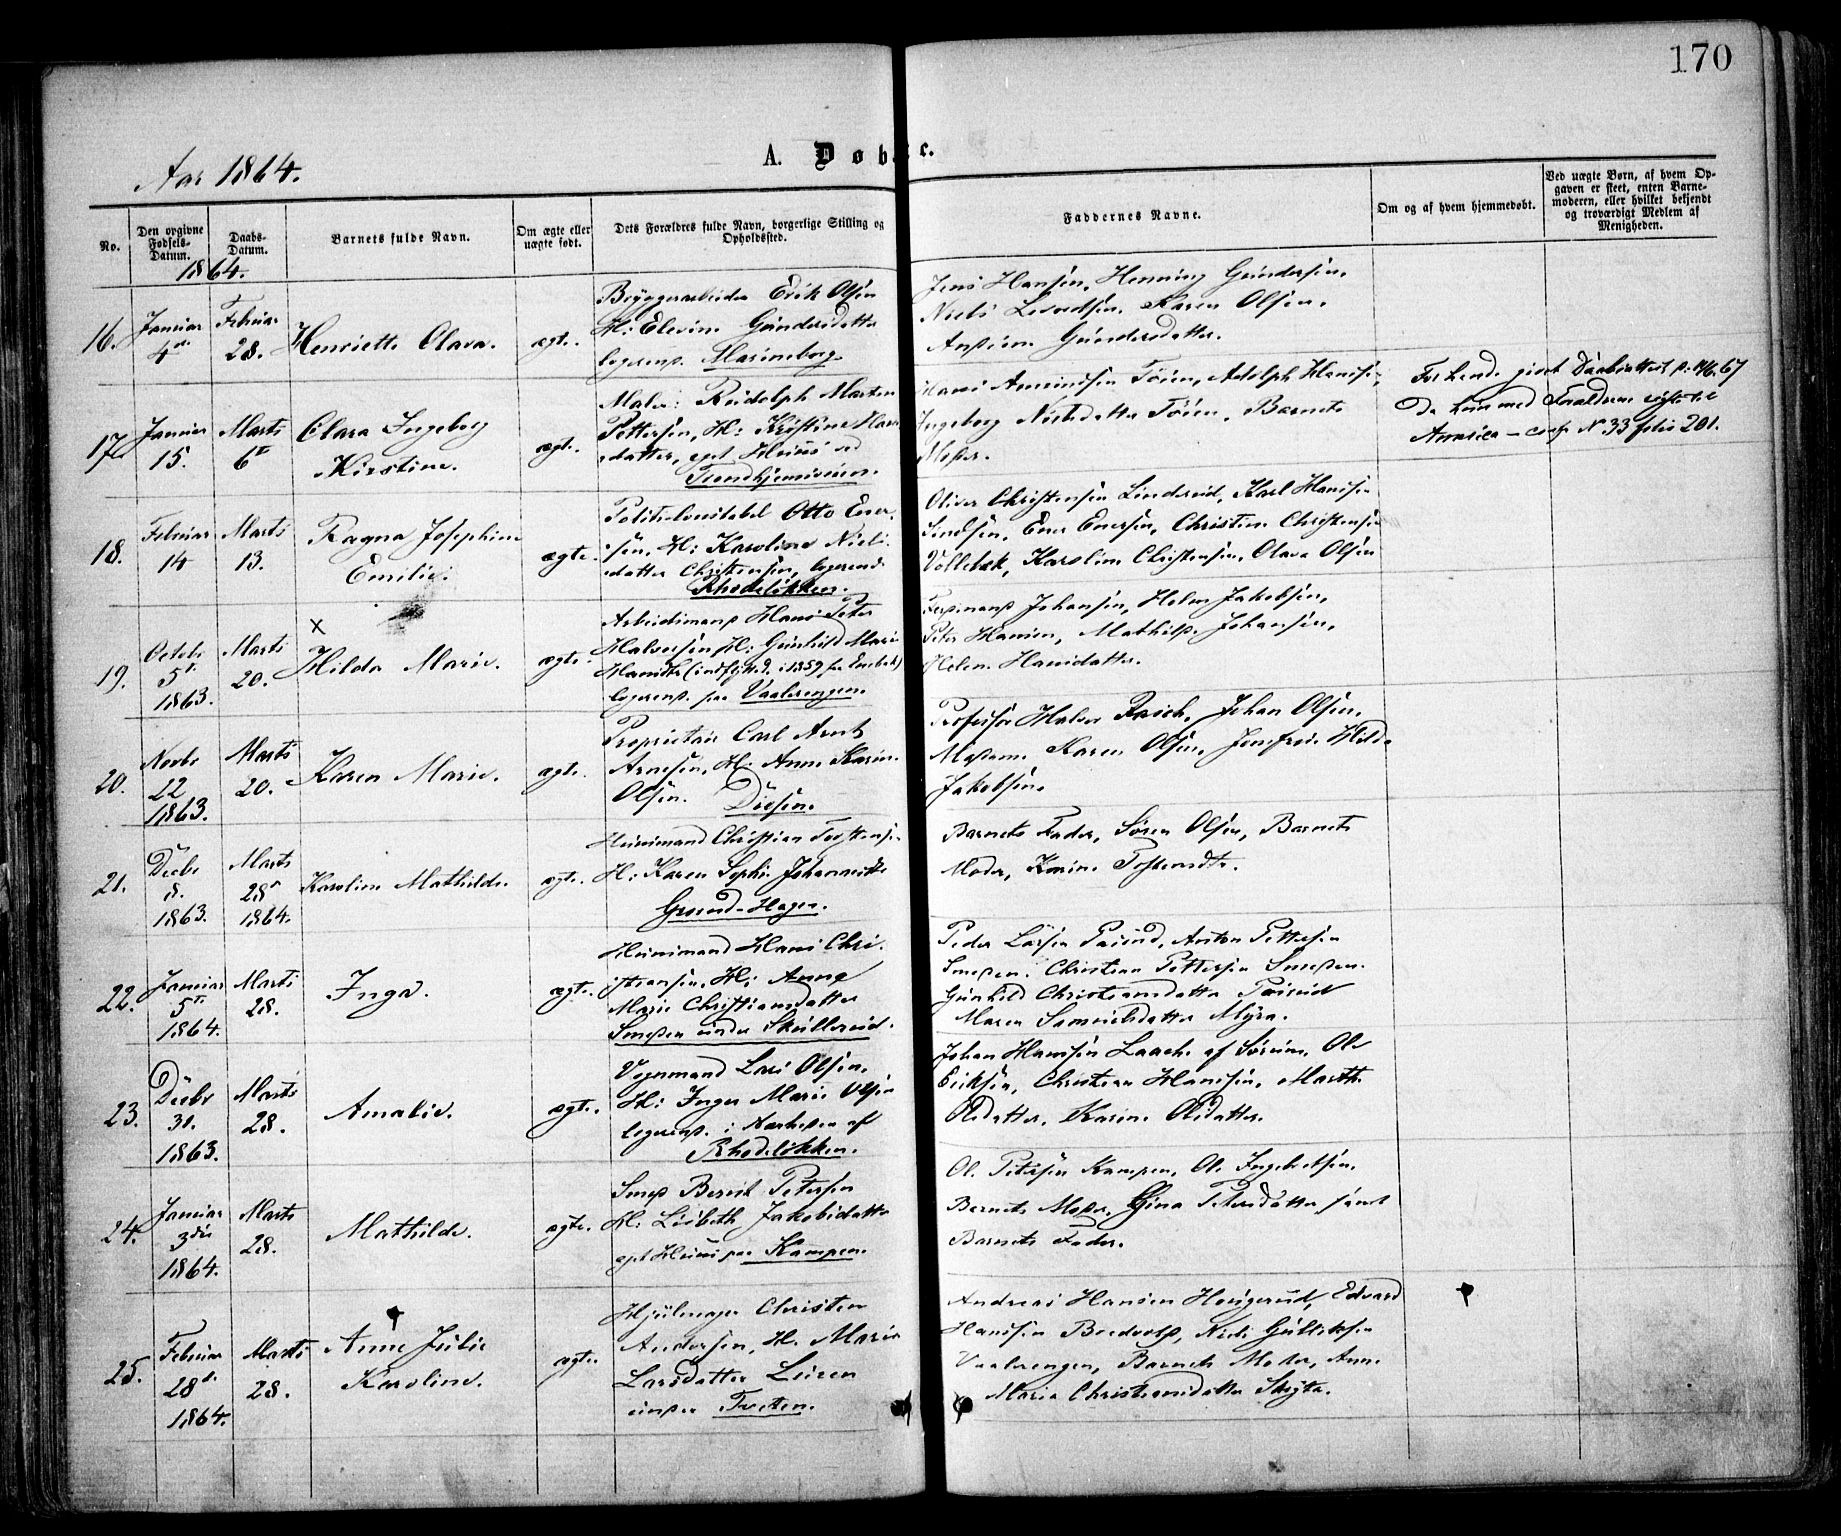 170
Aar 1864.
A. Døbte.
No.
Den opgivne Fødsels-Datum.
Daabs-Datum.
Barnets fulde Navn.
Om ægte eller uægte født.
Dets Forældres fulde Navn, borgerlige Stilling og Opholdssted.
Faddernes Navne.
Om og af hvem hjemmedøbt.
Ved uægte Børn, af hvem Opgaven er skeet, enten Barnemoderen, eller hvilket bekjendt og troværdigt Medlem af Menigheden.
1864.
16. Januar 4de
Februar 28.
Henriette Olava.
ægte.
Bryggerarbeider Erik Olsen
H: Elevine Gundersdatter
logerend. Marienborg.
Jens Hansen, Henning Gundersen,
Niels Karen Olsen.
Gundersdatter.
17. Januar 15.
Marts 6te
Clara Ingeborg
Kirstine.
ægte.
Maler: Rudolph Morten
Pettersen, H: Kristine Hans
datter, eget Huus ved
Trondhjemsveien.
Hans Amundsen Tøien, Adolph Hansen,
Ingeborg Nielsdatter Tøien, Barnets
Moder.
Daabsattest 67
de hun med Forældrene
America – conf. N 33 folio 201.
18. Februar 14
Marts 13.
Ragna Josephine
Emilie.
ægte.
Politikonstabel Otto Ener-
sen, H: Karoline Niels-
datter Christensen, logerend.
Rhodeløkken.
Oliver Christensen Linderud, Karl Hansen
Ener Enersen, Christian Christensen
Vollebæk, Karoline Christensen, Olava Olsen
19. Octobr 5te 1863.
Marts 20.
x
Hilda Marie.
ægte.
Arbeidsmand Hans Peter
Halvorsen H: Gunhild Marie
Hansdtr (indflyttet i 1859 fra Enebak)
logerend. paa Vaalerengen.
Ferdinand Johansen, Helene Jakobsen,
Peter Hansen, Mathilde Johansen,
Helene Hansdatter.
20. Novbr 22 1863.
Marts 20.
Karen Marie.
ægte.
Proprietair Carl Arnt
Arnesen, H: Anne Karine
Olsen. Disen.
Professor Halvor Rasch, Johan Olsen,
Madame Karen Olsen, Jomfru Hilda
Jakobsen.
21. Decbr 8. 1863.
Marts 28de 1864.
Karoline Mathilde.
ægte.
Huusmand Christian Tostensen
H: Karen Sophie Johannesdtr
Grønd-Hagen.
Barnets Fader, Søren Olsen, Barnets
Moder, Karine Tostensdtr.
22. Januar 5te 1864.
Marts 28.
Inga.
ægte.
Huusmand Hans Chri-
stiansen, H: Anne
Marie Christiansdatter
Smeden under Skullerud.
Peder Larsen Anton Pettersen
Smeden. Christian Pettersen Smeden.
Gunhild Christiansdatter
Maren Samuelsdatter Myra.
23. Decbr 31. 1863.
Marts 28.
Amalie.
ægte.
Vognmand Lars Olsen,
H: Inger Marie Olsen
logerend. i Nærheden af
Rhodeløkken.
Johan Hansen Laache af Sørum, Ole
Eriksen, Christian Hansen, Marthe
Olsdatter, Karine Olsdatter.
24. Januar 3die 1864.
Marts 28.
Mathilde.
ægte.
Smed Bernt Petersen
H: Lisbeth Jakobsdatter
eget Huus paa Kampen.
Ole Petersen Kampen, Ole Ingebretsen.
Barnets Moder, Gina Petersdatter samt
Barnets Fader.
25. Februar 28de 1864.
Marts 28.
Anne Julie
Karoline.
ægte.
Hjulmager Christen
Andersen, H: Maria
Larsdatter
under Tveten.
Andreas Hansen Haugerud, Edvard
Hansen Niels Gulliksen
Vaalerengen, Barnets Moder, Anne
Maria Christiansdatter